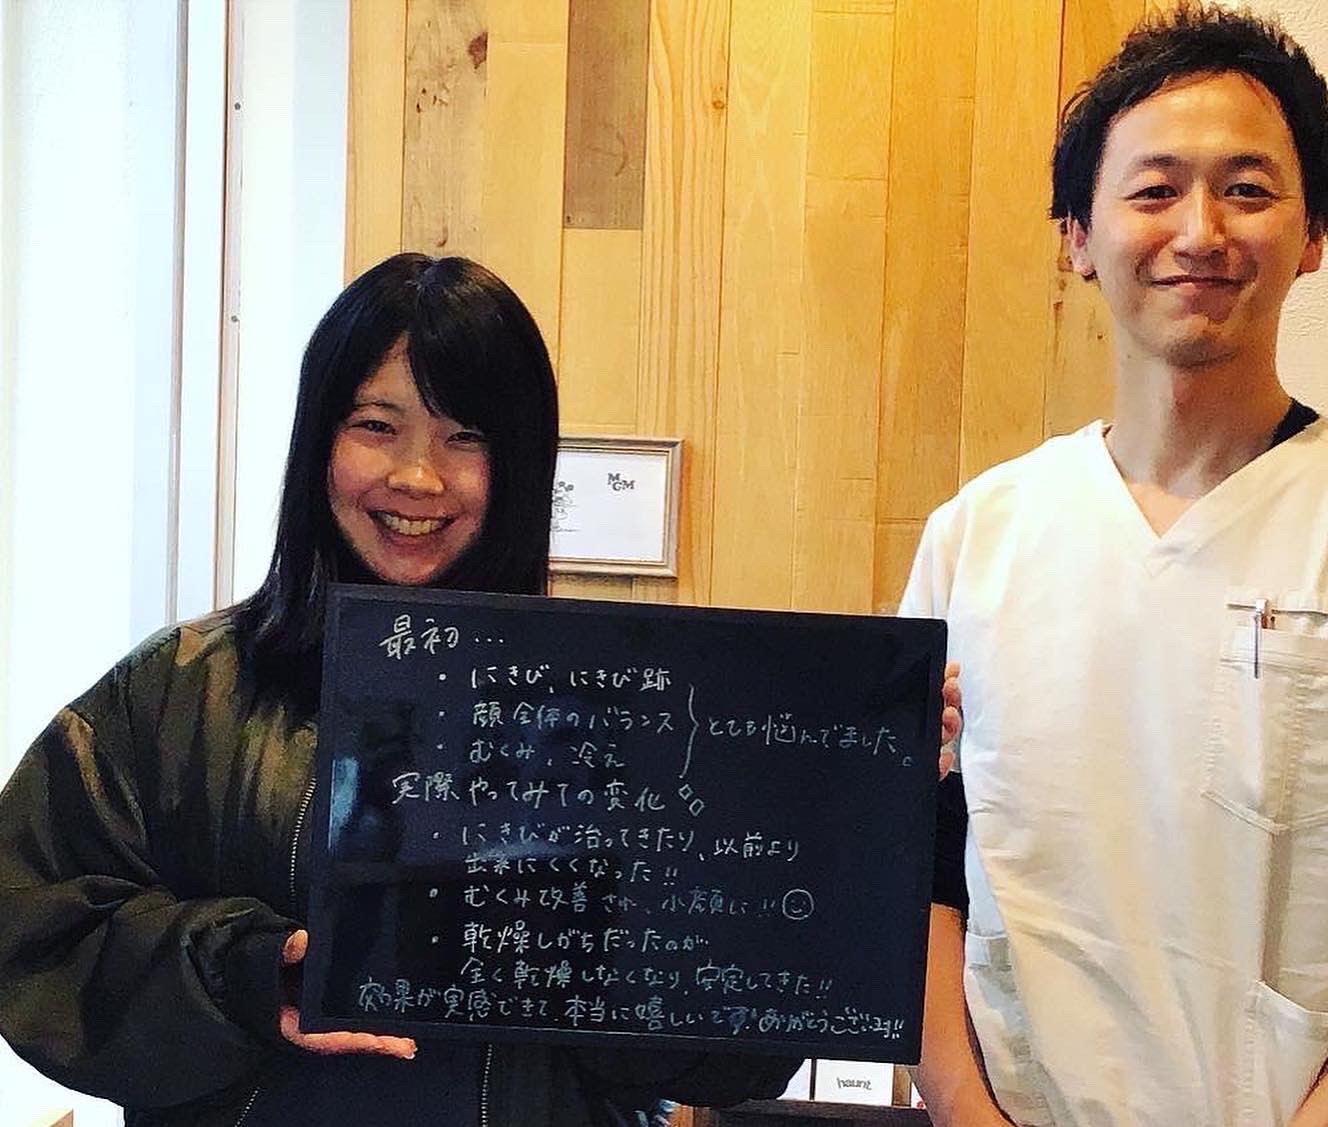 MGM
最初…
・にきび、にきび跡
・顔全体のバランス
・むくみ、冷え
とても悩んでました。
実際やってみての変化
・にきびが治ってきたり、以前より
出来にくくなった!!
・むくみ改善され、小顔に!!
・乾燥しがちだったのが
全く乾燥しなくなり、安定してきた!!
効果が実感できて、本当に嬉しいです!ありがとうございます!!
haunt